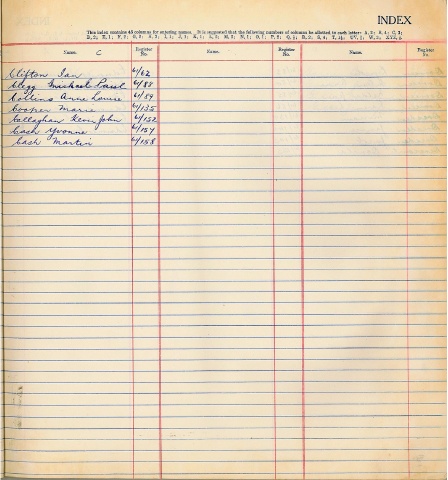 INDEX
This index contains 48 columns for entering names. It is suggested that the following numbers of columns be allotted to each letter: A, 2; B, 4; C, 3;
Name. C Register No. Name. Register No. Name. Register No.
Clifton Ian 6/62
Clegg Michael Paul 6/88
Collins Anne Louise 6/89
Cooper Marie 6/135
Callaghan Kevin John 6/152
Cash Yvonne 6/157
Cash Martin 6/158